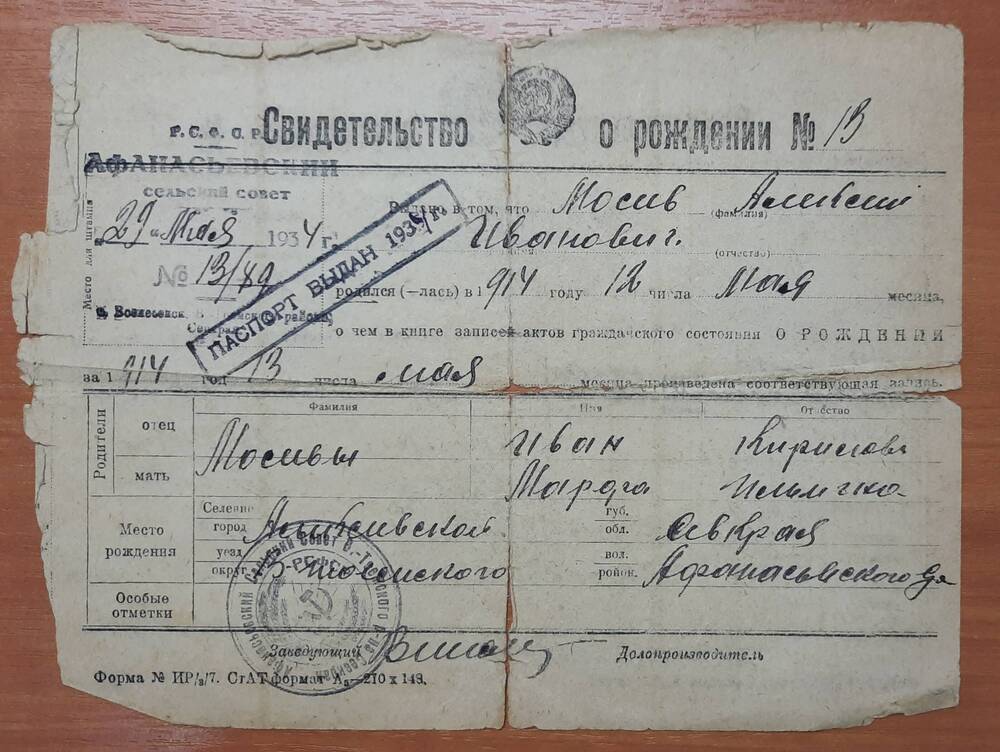 Р.С.Ф.С.Р.
Свидетельство о рождении № 13
АФАНАСЬЕВСКИЙ
сельский совет
"29" Мая 1934 г.
№ 13/89
Место для штампа
ПАСПОРТ ВЫДАН 193 г.
Выдано в том, что Мосив Алексий
(фамилия)
Иванович.
(отчество)
родился (—лась) в 1914 году 12 числа мая месяца,
о чем в книге записей актов гражданского состояния О РОЖДЕНИИ
за 1914 год 13 числа мая месяца произведена соответствующая запись.
Фамилия Имя Отчество
Родители
отец Мосивы Иван
мать
Место рождения
Селение
город
губ.
обл. Севкрая
уезд
округ
вол.
район. Афанасьевского
Особые отметки
Заведующий Делопроизводитель
Форма № ИР/3/7. СтАТ формат А5—210 х 148.